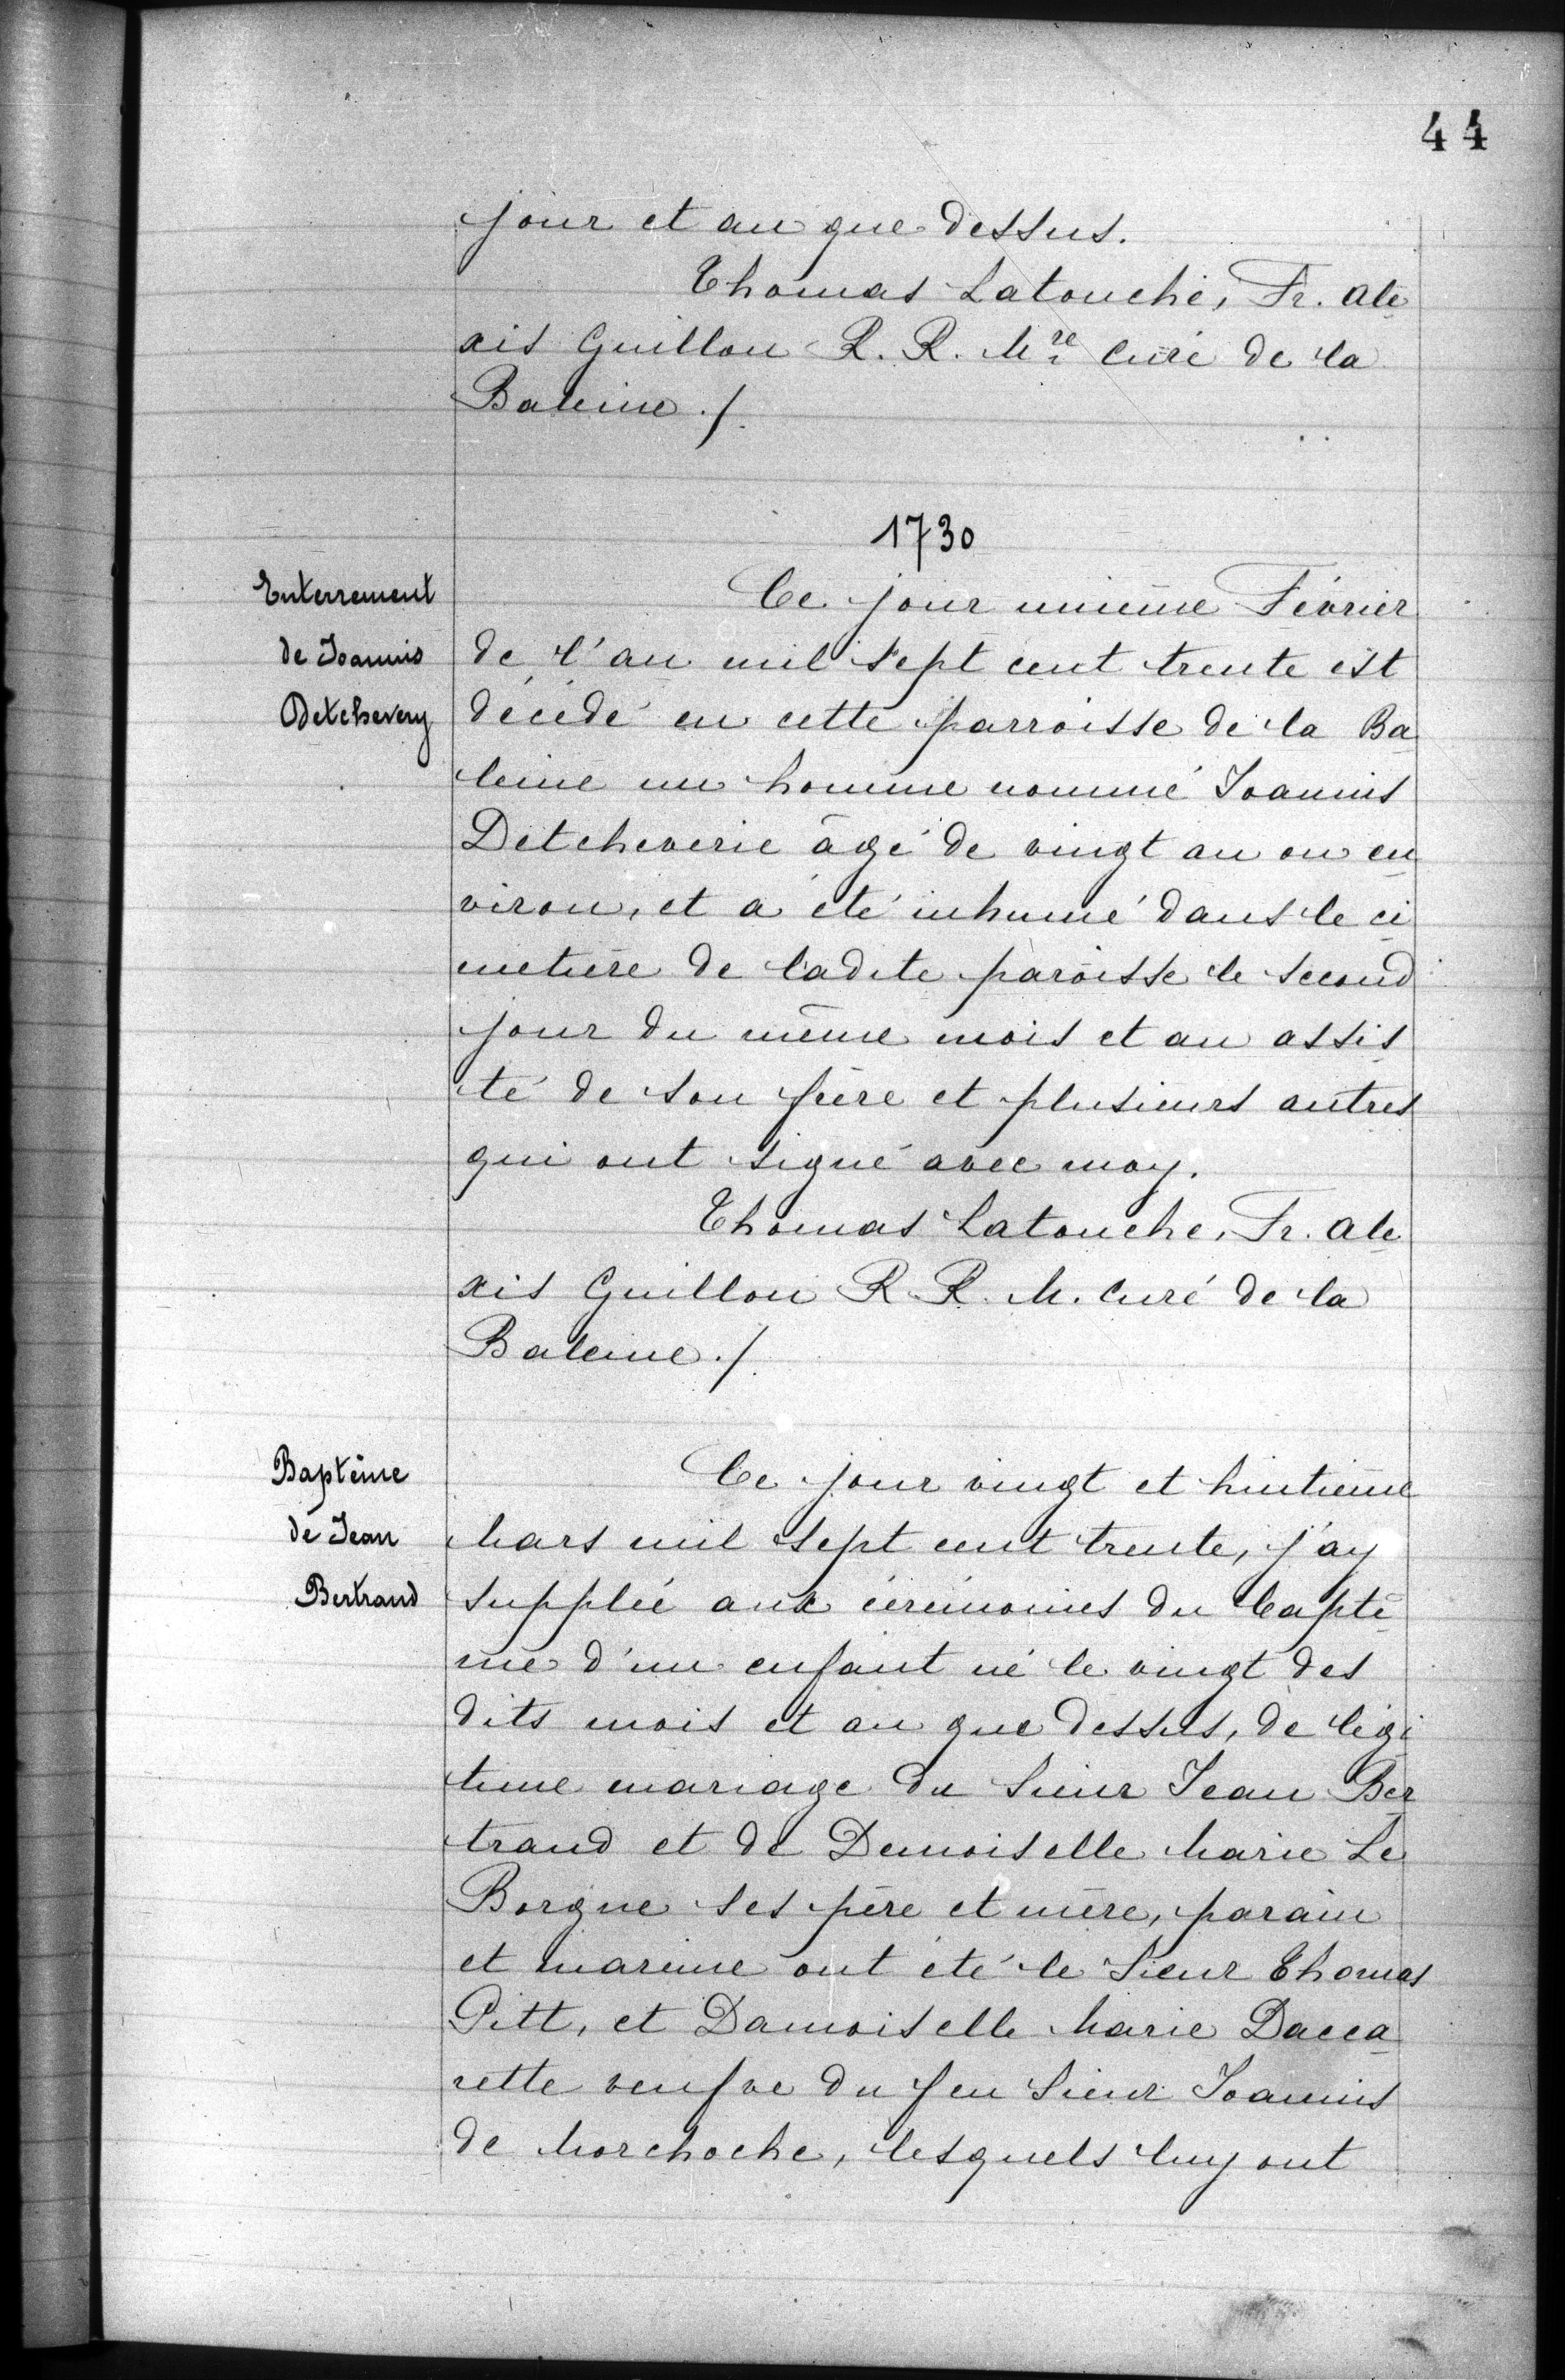 44
jour et an que dessus.
Thomas Latouche, Fr. Ale
xis Guillou R. R. Mre Curé de la
Baleine ./.
1730
Enterrement
de Joannis
Detchevery
Ce jour unième Février
de l'an mil sept cent trente est
décédé en cette parroisse de la Ba
leine un homme nommé Joannis
Detcheverie âgé de vingt an ou en
viron, et a été inhumé dans le ci
metière de ladite paroisse le second
jour du même mois et an assis
té de son frère et plusieurs autres
qui ont signé avec moy.
Thomas Latouche, Fr. Ale
xis Guillou R. R. M. Curé de la
Baleine ./.
Baptême
de Jean
Bertrand
Ce jour vingt et huitième
Mars mil sept cent trente, j'ay
supplée aux cérémonies du Baptê
me d'un enfant né le vingt des
dits mois et an que dessus, de légi
time mariage du Sieur Jean Ber
trand et de Demoiselle Marie Le
Borgne ses père et mère, parain
et mareine ont été le Sieur Thomas
Pitt, et Damoiselle Marie Dacca
rette veufve du feu Sieur Joannis
de Morchoche, lesquels luy ont